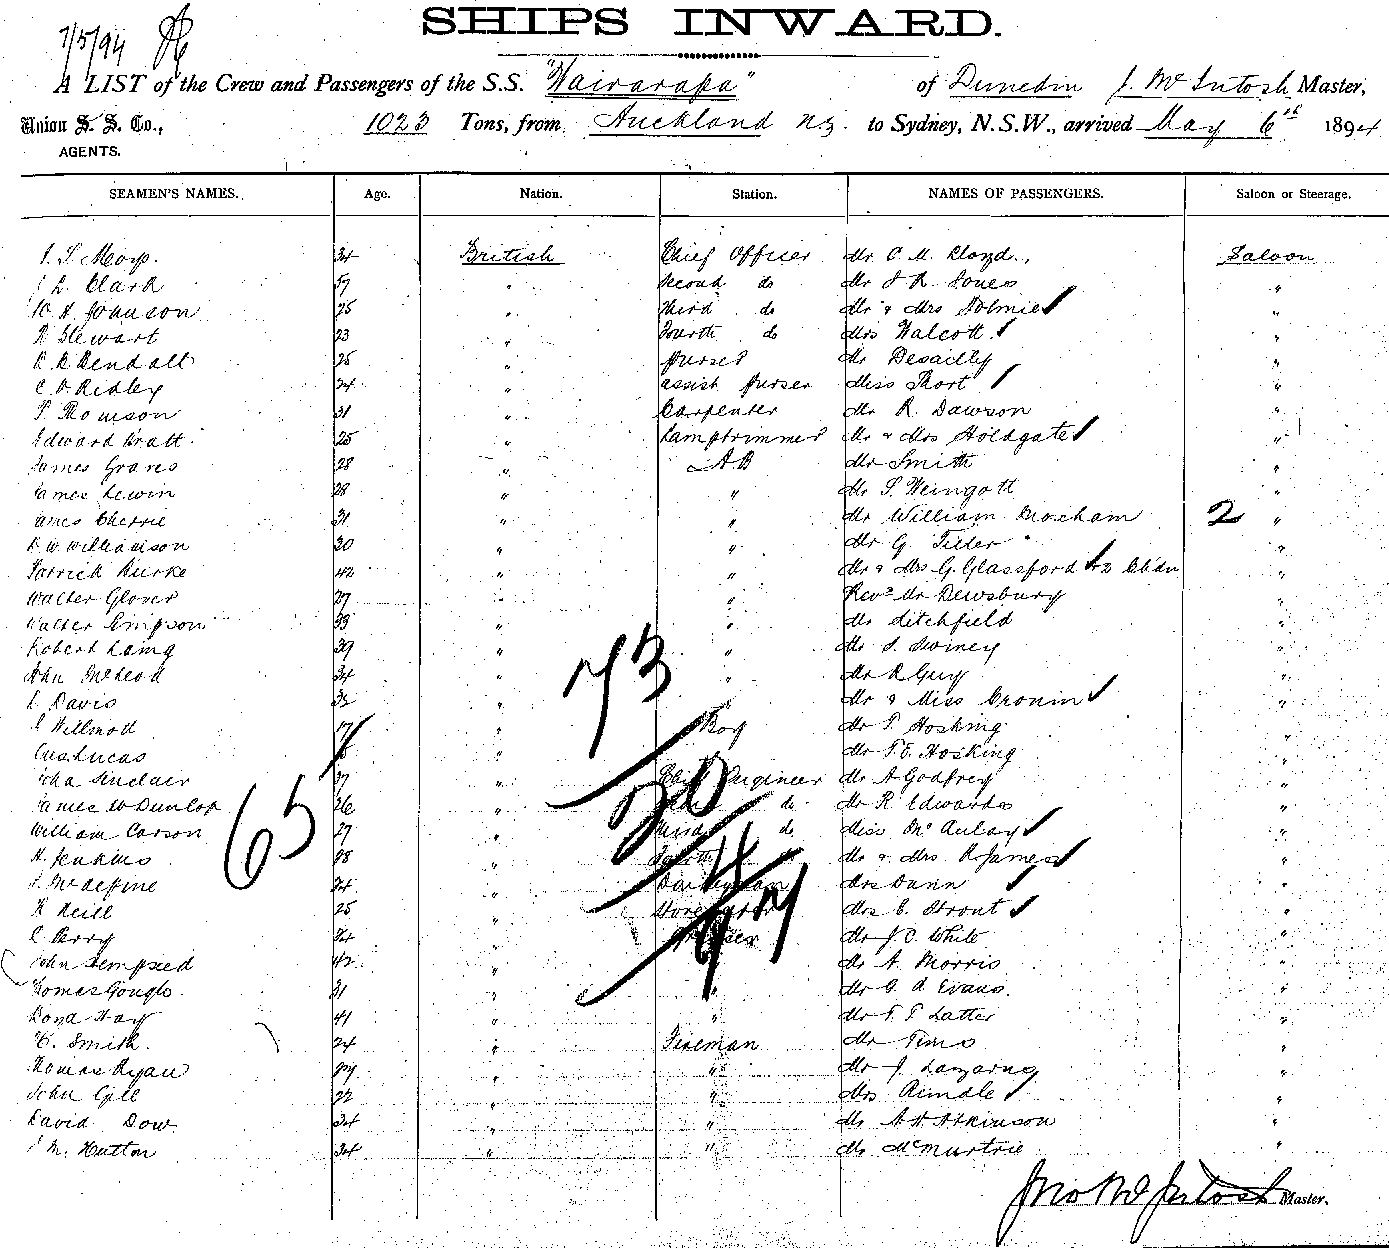 SHIPS INWARD.
7/5/94
A LIST of the Crew and Passengers of the S.S. "Wairarapa" of Dunedin J. McIntosh Master,
Union S. S. Co., 1023 Tons, from Auckland NZ. to Sydney, N.S.W., arrived May 6th 1894
AGENTS.
SEAMEN'S NAMES. Age. Nation. Station. NAMES OF PASSENGERS. Saloon or Steerage.
34 British Chief Officer Mr C. M. Lloyd., Saloon
Clark second do Mr J R Jones "
Johnson 25 " third do Mr & Mrs Dolmie "
R Stewart 23 " Fourth do Mrs Walcott "
Bendall 25 " purser Mr Desailly "
Ridley 24 " assist purser Miss Short "
Thomson 31 " Carpenter Mr R. Dawson "
Edward Pratt 25 " Lamptrimmer Mr & Mrs Holdgate "
James Graves 28 " AB Mr Smith "
James Lewin 28 " " Mr S. Weingott "
James Cherrie 31 " " Mr William Broxham 2 "
Williamson 30 " " Mr G "
Patrick Burke 42 " " Mr & Mrs G. Glassford & 2 Chdn "
Walter Glover 27 " " Revd Mr Dewsbury "
Walter Simpson 33 " " Mr Litchfield "
Robert Laing 39 " " Mr "
John McLeod 34 " " Mr R Guy "
Davis 32 " " Mr & Miss Cronin "
Willmott 17 " Boy Mr T. Hosking "
Lucas " Mr T. E. Hosking "
John Sinclair 37 " Chief Engineer Mr A Godfrey "
James W Dunlop 26 " do Mr R. Edwards "
William Carson 27 " Third do Miss McAulay "
H. Jenkins 28 " Fourth " Mr & Mrs R James "
24 " Donkeyman Mrs Dunn "
Neill 25 " Mrs C. Strout "
Perry 34 " Mr J. O. White "
John Dempsied 42 " Mr A. Morris "
Thomas Gough 31 " " Mr Evans. "
Hay 41 " " Mr T. T. Latter "
Smith. 24 " Fireman Mr Tims "
Thomas Ryan " " Mr J. "
John Gill 22 " " Mrs Rimdle "
David Dow. 34 " " Mr A H Atkinson "
Hutton 34 " " Mr McMurtrie "
65
73
20
4
97
Jno McIntosh Master.